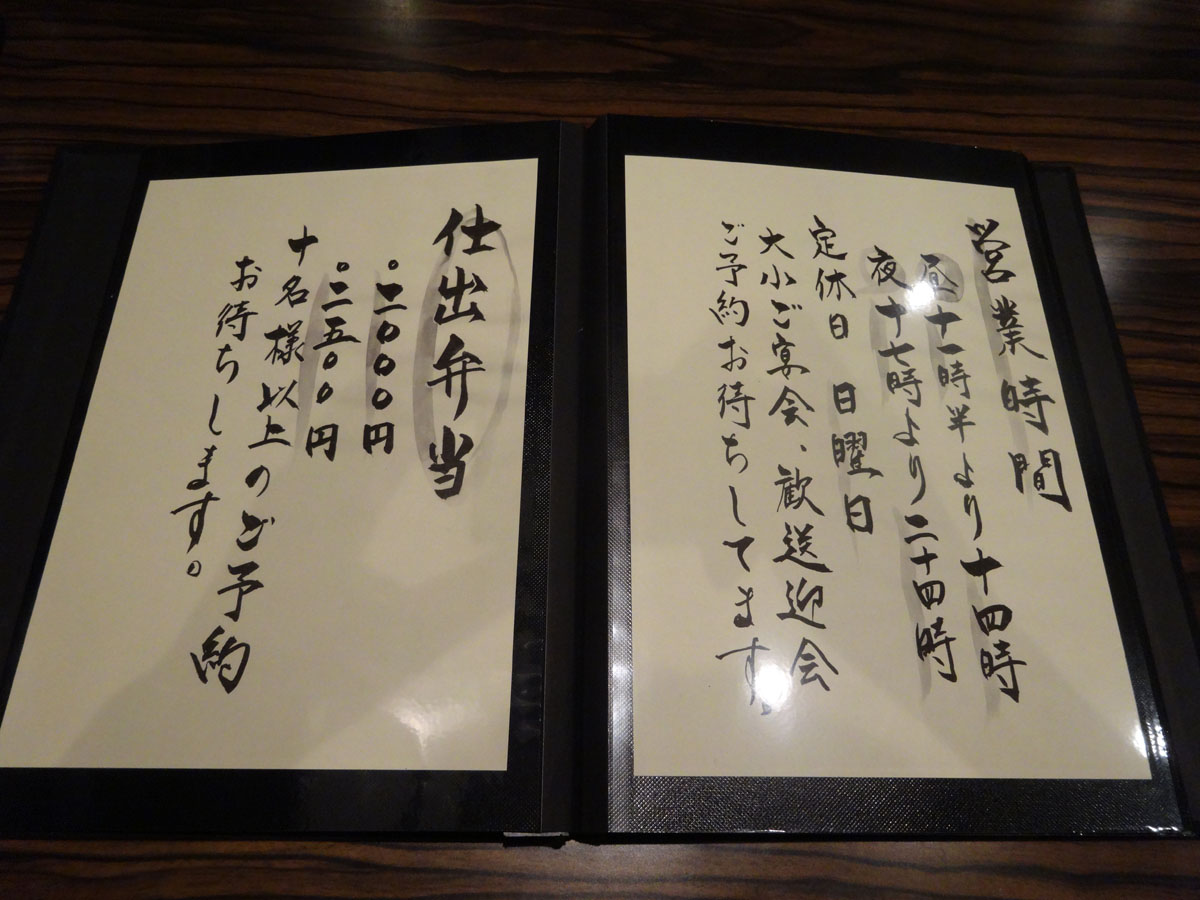 営業時間
昼十一時半より十四時
夜十七時より二十四時
定休日 日曜日
大小ご宴会、歓送迎会
ご予約お待ちしてます。
仕出弁当
。二〇〇〇円
。二五〇〇円
十名様以上のご予約
お待ちします。